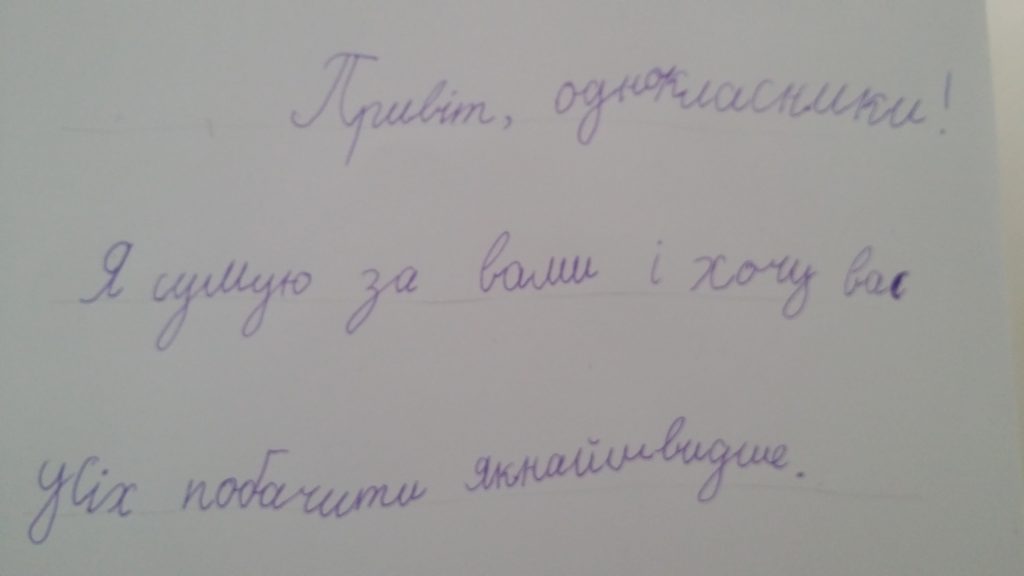 Привіт, однокласники!
Я сумую за вами і хочу вас
Усіх побачити якнайшвидше.